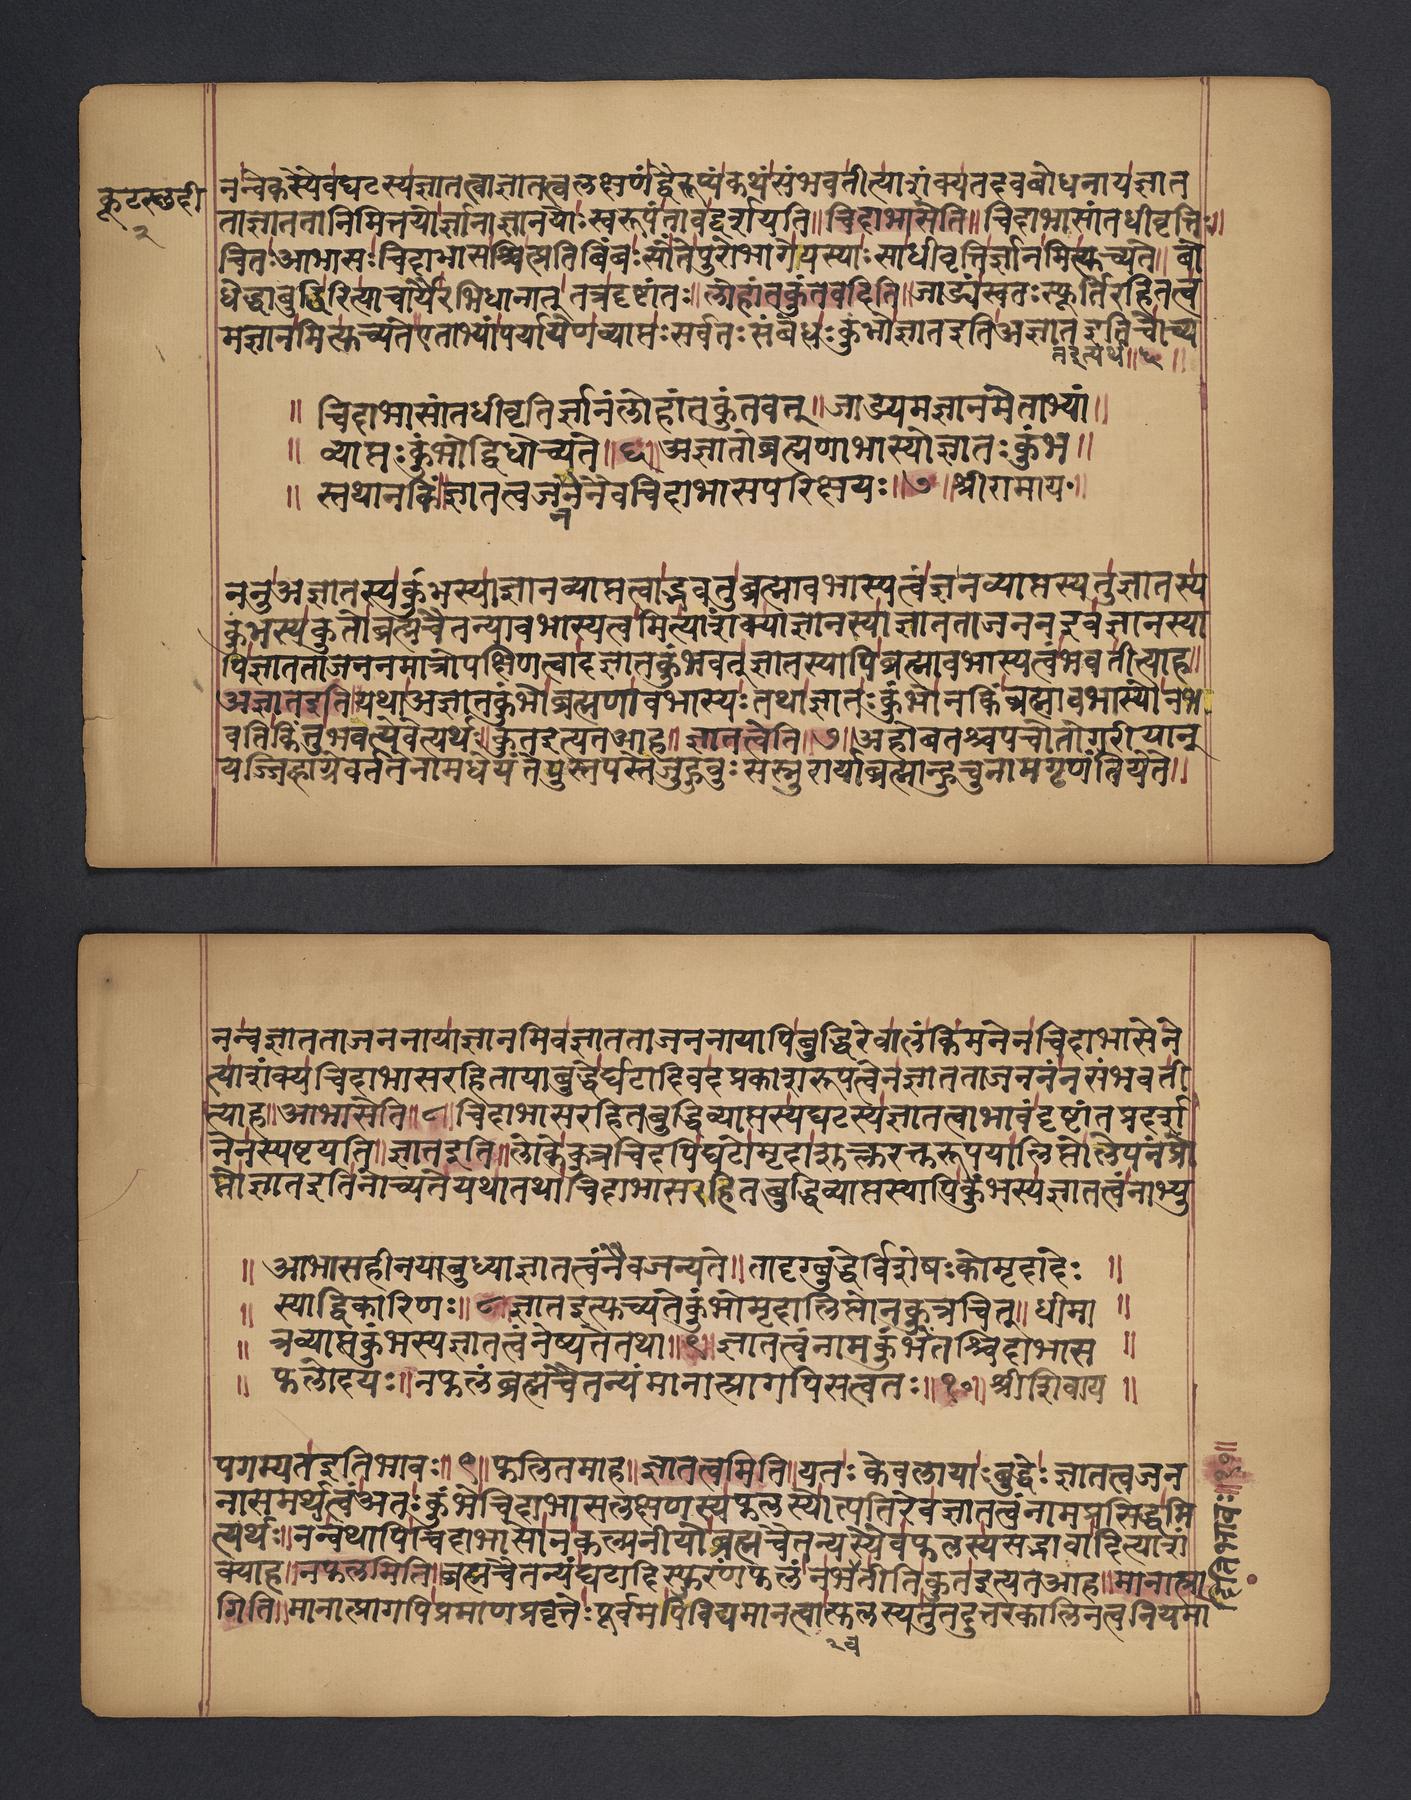 कूटस्छदी
२
नन्वेकस्येवघटस्यज्ञातत्वाज्ञातत्वलक्ष्णणंद्वैरूप्यंकथंसंभवतीत्याशंक्यतदवबोधनायज्ञात
ताज्ञाततानिमित्तयोर्ज्ञानाज्ञानयोःस्वरूपंतावद्दर्शयति॥चिदाभासेति॥चिदाभासांतधीवृत्तिः॥
चितःआभासःचिदाभासश्चित्प्रतिबिंबःसोंतेपुरोभागेयस्याःसाधीवृत्तिर्ज्ञानमित्युच्यते॥बो
धेद्धाबुद्धिरित्याचार्यैरभिधानात्तत्रदृष्टांतः॥लोहांतकुंतवदिति॥जाड्यंस्वतःस्फूर्तिरहितत्व
मज्ञानमित्युच्यतेएताभ्यांपर्यायेणव्याप्तःसर्वतःसंबंधःकुंभोज्ञातइतिअज्ञातइतिचोच्य
तइत्यर्थः॥६॥
॥ चिदाभासांतधीवृतिर्ज्ञानंलोहांतकुंतवत्॥जाड्यमज्ञानमेताभ्यां॥
॥ व्याप्तःकुंभोद्विधोच्यते॥६॥अज्ञातोब्रह्मणाभास्योज्ञातःकुंभ॥
॥ स्तथानकिं॥ज्ञातत्वजनेनैवचिदाभासपरिक्ष्नयः॥७॥श्रीरामाय॰॥
न
ननुअज्ञातस्यकुंभस्याज्ञानव्याप्तत्वाद्भवतुब्रह्मावभास्यत्वंज्ञनव्याप्तस्यतुज्ञातस्य
कुंभस्यकुतोब्रह्मचैतन्यावभास्यत्वमित्याशंक्याज्ञानस्याज्ञातताजननइवज्ञानस्या
पिज्ञातताजननमात्रोपक्षिणत्वादज्ञातकुंभवत्ज्ञातस्यापिब्रह्मावभास्यत्वंभवतीत्याह॥
अज्ञातइति॥यथाअज्ञातकुंभोब्रह्मणावभास्यःतथाज्ञातःकुंभोनकिंब्रह्मावभास्योनभ
वतिकिंतुभवत्येवेत्यर्थः॥कुतइत्यतआह॥ज्ञातत्वेति॥७॥अहोबतश्वपचोतोगरीयान्
यज्जिह्वाग्रेवर्ततेनामधेयंतेपुस्तपस्तेजुहुवुःसस्नुरार्याब्रह्मान्हुचुनामगृणंतियेते॥
नन्वज्ञातताजननायाज्ञानमिवज्ञातताजननायापिबुद्धिरेवालंकिमनेनचिदाभासेने
त्याशंक्यचिदाभासरहितायाबुद्धेर्घटादिवदप्रकाशरूपत्वेनज्ञातताजननंनसंभवती
त्याह॥आभासेति॥८॥चिदाभासरहितबुद्धिव्याप्तस्यघटस्यज्ञातत्वाभावंदृष्टांतप्रदर्श
नेनस्पष्टयति॥ज्ञातइति॥लोकेकुत्रचिदपिघटोमृदाशुक्लरक्तरूपयालिप्तोलेपनंप्रा
प्तोज्ञातइतिनोच्यतेयथातथाचिदाभासरहितबुद्धिव्याप्तस्यापिकुंभस्यज्ञातत्वंनाभ्यु
॥ आभासहीनयाबुध्याज्ञातत्वंनैवजन्यते॥तादृग्बुद्धेर्विशेषःकोमृदादेः ॥
॥ स्याद्विकारिणः॥८॥ज्ञातइत्युच्यतेकुंभोमृदालिप्तोनकुत्रचित्॥धीमा ॥
॥ त्रव्याप्तकुंभस्यज्ञातत्वंनेष्यतेतथा॥९॥ज्ञातत्वंनामकुंभेतश्चिदाभास ॥
॥ फलोदयः॥नफलंब्रह्मचैतन्यंमानात्प्रागपिसत्वतः॥१०॥श्रीशिवाय ॥
पगम्यतइतिभावः॥९॥फलितमाह॥ज्ञातत्वमिति॥यतःकेवलायाःबुद्धेःज्ञातत्वजन
नासमर्थत्वंअतःकुंभेचिदाभासलक्षणस्यफलस्योत्पतिरेवज्ञातत्वंनामप्रसिद्धमि
त्यर्थः॥नन्वथापिचिदाभासोनकल्प्यनीयोब्रह्मचैतन्यस्यैवफलस्यसद्भावादित्याशं
क्याह॥नफलमिति॥ब्रह्मचैतन्यंघटादिस्फुरणंफलंनभवेतीतिकुतइत्यतआह॥मानात्प्रा
गिति॥मानात्प्रागपिप्रमाणप्रवृत्तेःपूर्वमपिविद्यमानत्वात्फलस्यतुतदुत्तरकालिनत्वनियमा
२व
दितिभावः॥१०॥